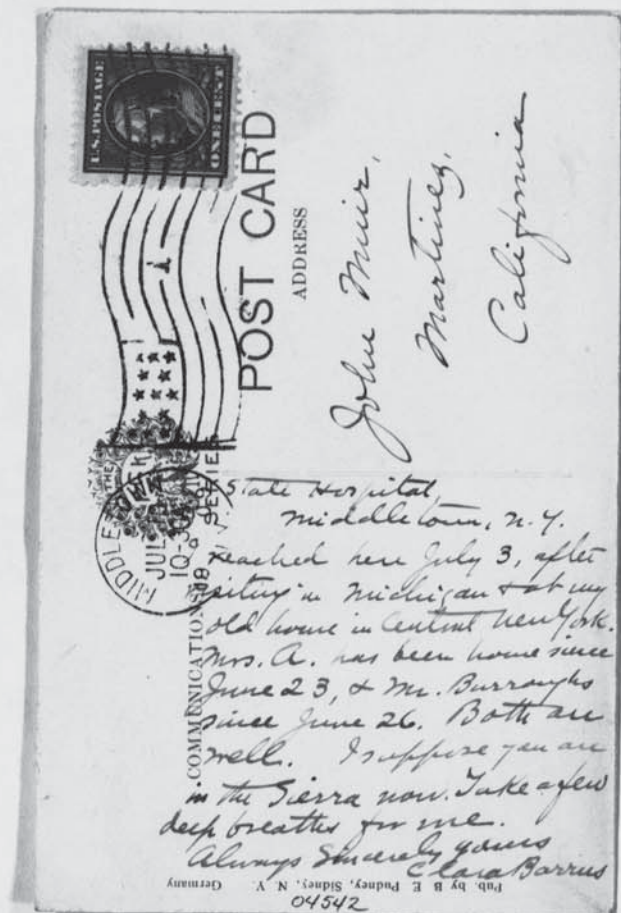 U.S. POSTAGE
ONE CENT
POST CARD
ADDRESS
John Muir,
Martinez,
California
MIDDLETOWN
JUL
10-30A
COMMUNICATION
State Hospital,
Middletown, N.Y.
Reached here July 3, after
visiting in Michigan & at my
old home in Central New York.
Mrs. A. has been home since
June 23, & Mr. Burroughs
since June 26. Both are
well. I suppose you are
in the Sierra now. Take a few
deep breaths for me.
Always Sincerely yours
Clara Barrus
Pub. by B E Pudney, Sidney, N. Y. Germany
04542